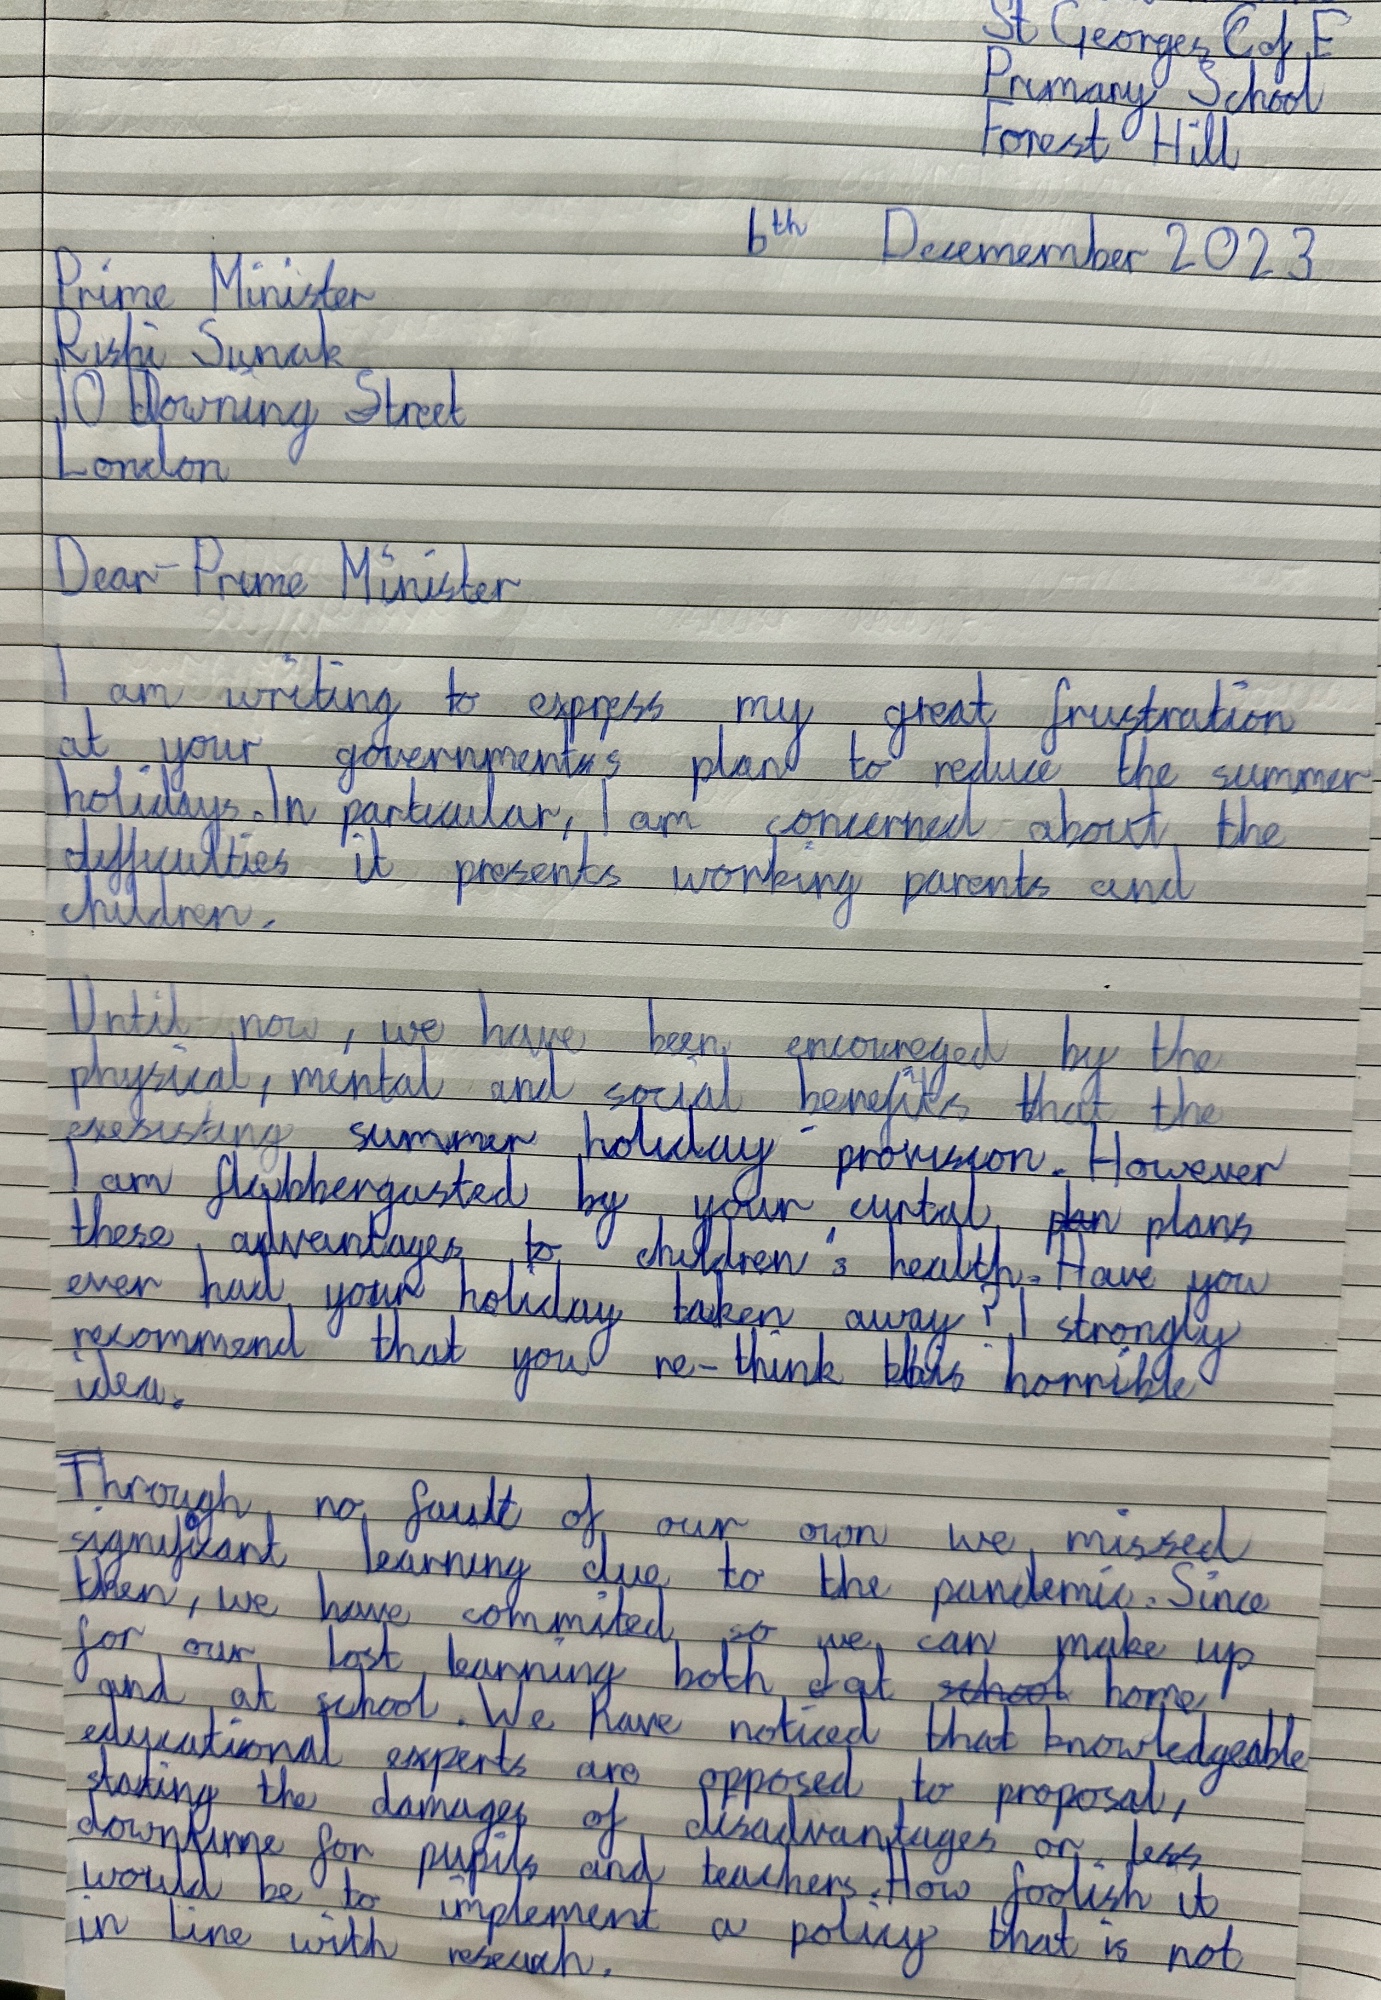 St Georges C of E
Primary School
Forest Hill
6th Decemember 2023
Prime Minister
Rishi Sunak
10 Downing Street
London
Dear Prime Minister
I am writing to express my great frustration
at your governments plan to reduce the summer
holidays. In particular, I am concerned about the
difficulties it presents working parents and
children.
Until now, we have been encoureged by the
physical, mental and social benefits that the
exesisting summer holiday provision. However
I am flabbergasted by your curtal plan plans
these advantages to children's health. Have you
ever had your holiday taken away? I strongly
recommend that you re-think this horrible
idea.
Through no fault of our own we missed
significant learning due to the pandemic. Since
then, we have commited so we can make up
for our lost learning both at school home
and at school. We have noticed that knowledgeable
educational experts are opposed to proposal,
stating the damages of disadvantages or less
downtime for pupils and teachers. How foolish it
would be to implement a policy that is not
in line with research.